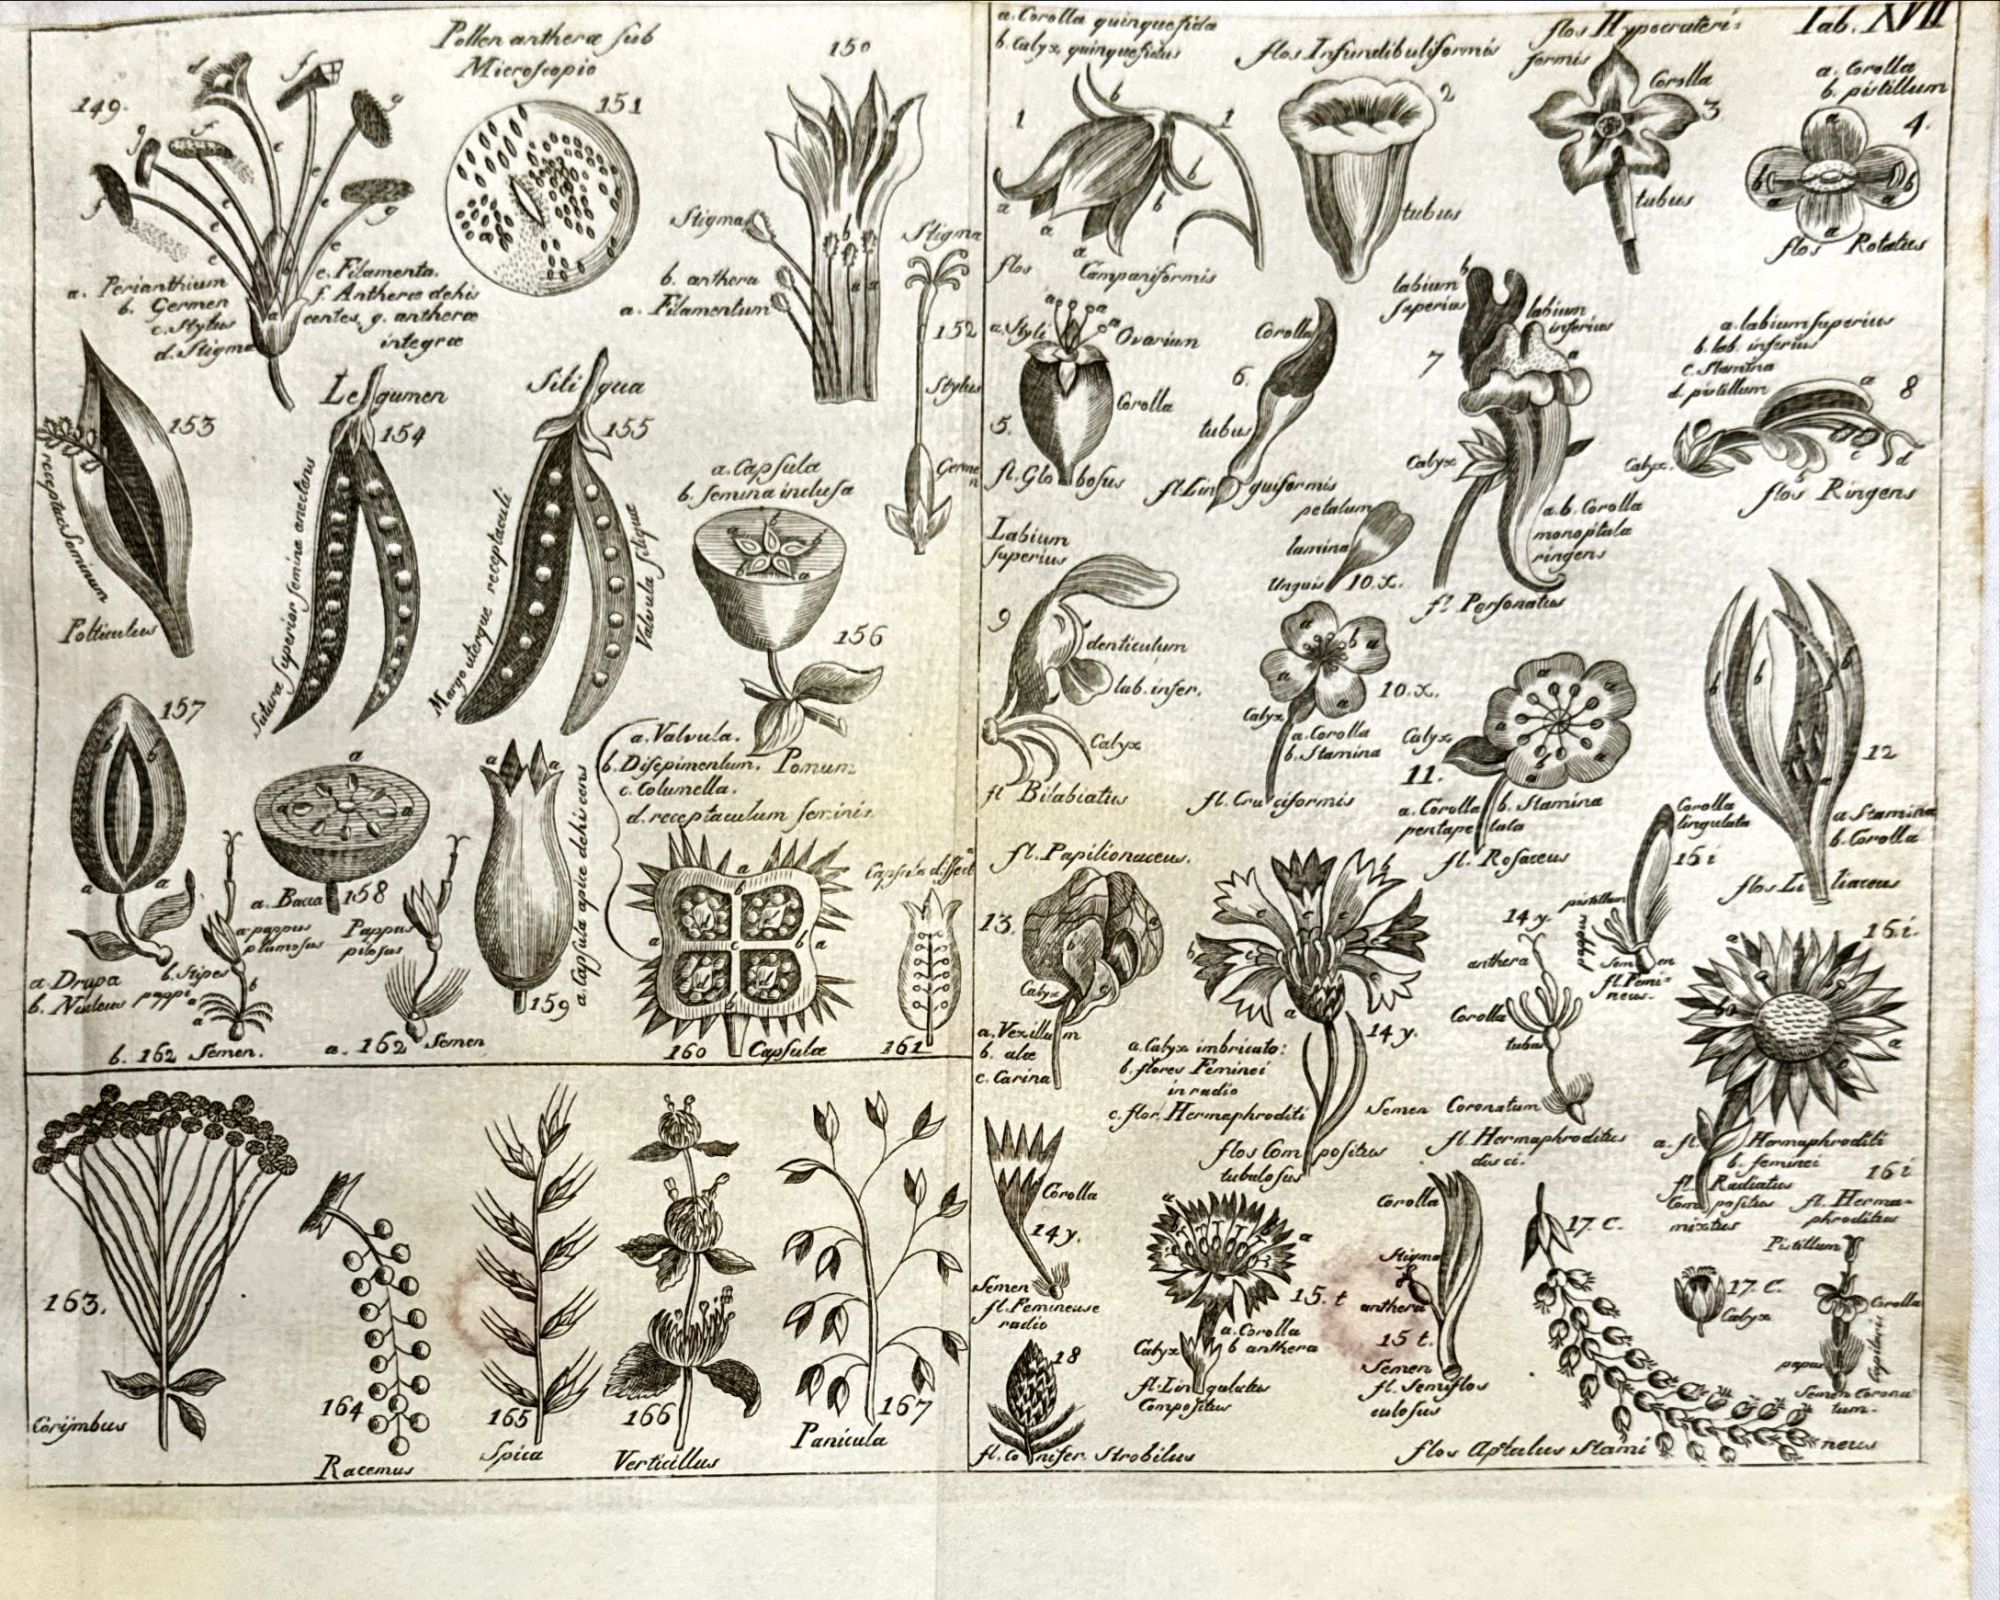 149.
d
f
g
g
f
f
e
e
e
e
e
a. Perianthium
b. Germen
c. Stylus
d. Stigma
e. Filamenta.
f. Antheræ dehis
centes, g. antheræ
integræ
Pollen antheræ sub
Microscopio
151
150
Stigma
b. anthera
a. Filamentum
b
a a
Stigma
152
Stylus
Germe
n
153
receptac. seminum
Folliculus
Legumen
154
Sutura superior semina anectans
Siliqua
155
Margo uterque receptaculi
Valvula siliquæ
a. Capsula
b. semina inclusa
156
Pomum
157
a
b
a
a
a Drupa
b. Nucleus
a
a
a
a. Bacca
158
a. pappus
plumosus
b. Stipes
pappi
b
a
b. 162 Semen.
Pappus
pilosus
a. 162 Semen
a a
159
a. Capsula apice dehiscens
a. Valvula.
b. Disepimentum.
c. Columella.
d. receptaculum seminis.
a
b
a
c
b a
d
160 Capsula
Capsula dissect
161
163.
Corÿmbus
164
Racemus
165
Spica
166
Verticillus
167
Panicula
Tab. XVII
a. Corolla quinquefida
b. Calyx quinquefidus
1
b
1
b
b
a
a
a
flos Campaniformis
flos Infundibuliformis
2
tubus
flos Hypocrateri-
formis
Corolla
3
tubus
a. Corolla
b. pistillum
4.
a
b
b
a
flos Rotatus
a
a
a. Styli
Ovarium
Corolla
5.
fl. Globosus
Corolla
6.
tubus
fl. Linguiformis
labium
superius
b
labium
inferius
a
7
Calyx
a. b. Corolla
monopetala
ringens
fl. Personatus
a. labium superius
b. lab. inferius
c. Stamina
d. pistillum
a
8
c
d
Calyx.
flos Ringens
Labium
superius
9
denticulum
lab. infer.
Calyx
fl Bilabiatus
petalum
lamina
Unguis
10. x.
a
b a
a
10. x.
Calyx
a. Corolla
b. Stamina
fl. Cruciformis
Calyx
11.
a
a
a. Corolla
pentapetala
b. Stamina
fl. Rosaceus
b
b
b
a
12
a. Stamina
b. Corolla
flos Liliaceus
fl. Papilionaceus.
13.
a
b
c
Calyx
a. Vexillum
b. alæ
c. Carina
b
b
c
c
a
14 y.
a. Calyx imbricato:
b. flores Feminei
in radio
c. flor. Hermaphroditi
flos Compositus
tubulosus
14 y.
anthera
Corolla
tubus
Semen Coronatum
fl. Hermaphroditus
disci.
Corolla
lingulata
15 i
pistillum
pappus
Semen
fl. Femi-
neus.
16. i.
a
b
a
a. fl. Hermaphroditi
b. feminei
fl. Radiatus
Compositus
mixtus
Corolla
14 y.
Semen
fl. Femineus e
radio
a
a
15. t
a. Corolla
b anthera
Calyx
fl. Lingulatus
Compositus
Corolla
Stigma
anthera
15 t.
Semen
fl. Semiflos
culosus
17. C.
17. C.
Calyx
16 i
fl. Herma-
phroditus
Pistillum
Corolla
pappus
Capilaris
Semen Corona
tum.
18
fl. Conifer. Strobilus
flos Apetalus Stamineus